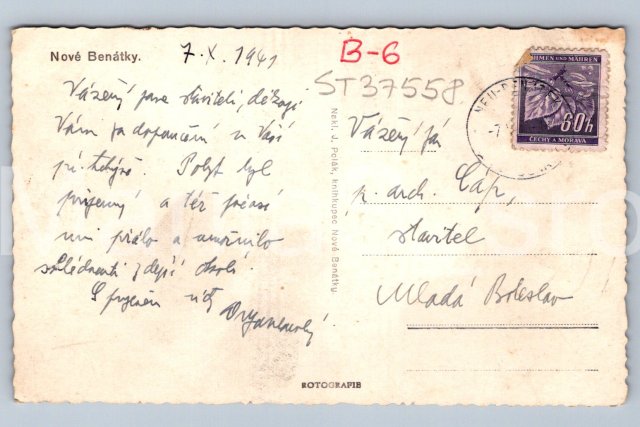 Nové Benátky.
7.X.1941
B-6
ST37558
Vážený pane staviteli, děkuji
Vám za doporučení u Vaší
pí
Pobyt byl
příjemný a též počasí
mi přálo a umožnilo
shlédnouti zdejší okolí.
S
Vážený pán
p. arch. Čáp,
stavitel
Mladá Boleslav
Nakl. J. Polák, knihkupec Nové Benátky.
ROTOGRAFIE
BÖHMEN UND MÄHREN
60h
ČECHY A MORAVA
NEU-BENATEK